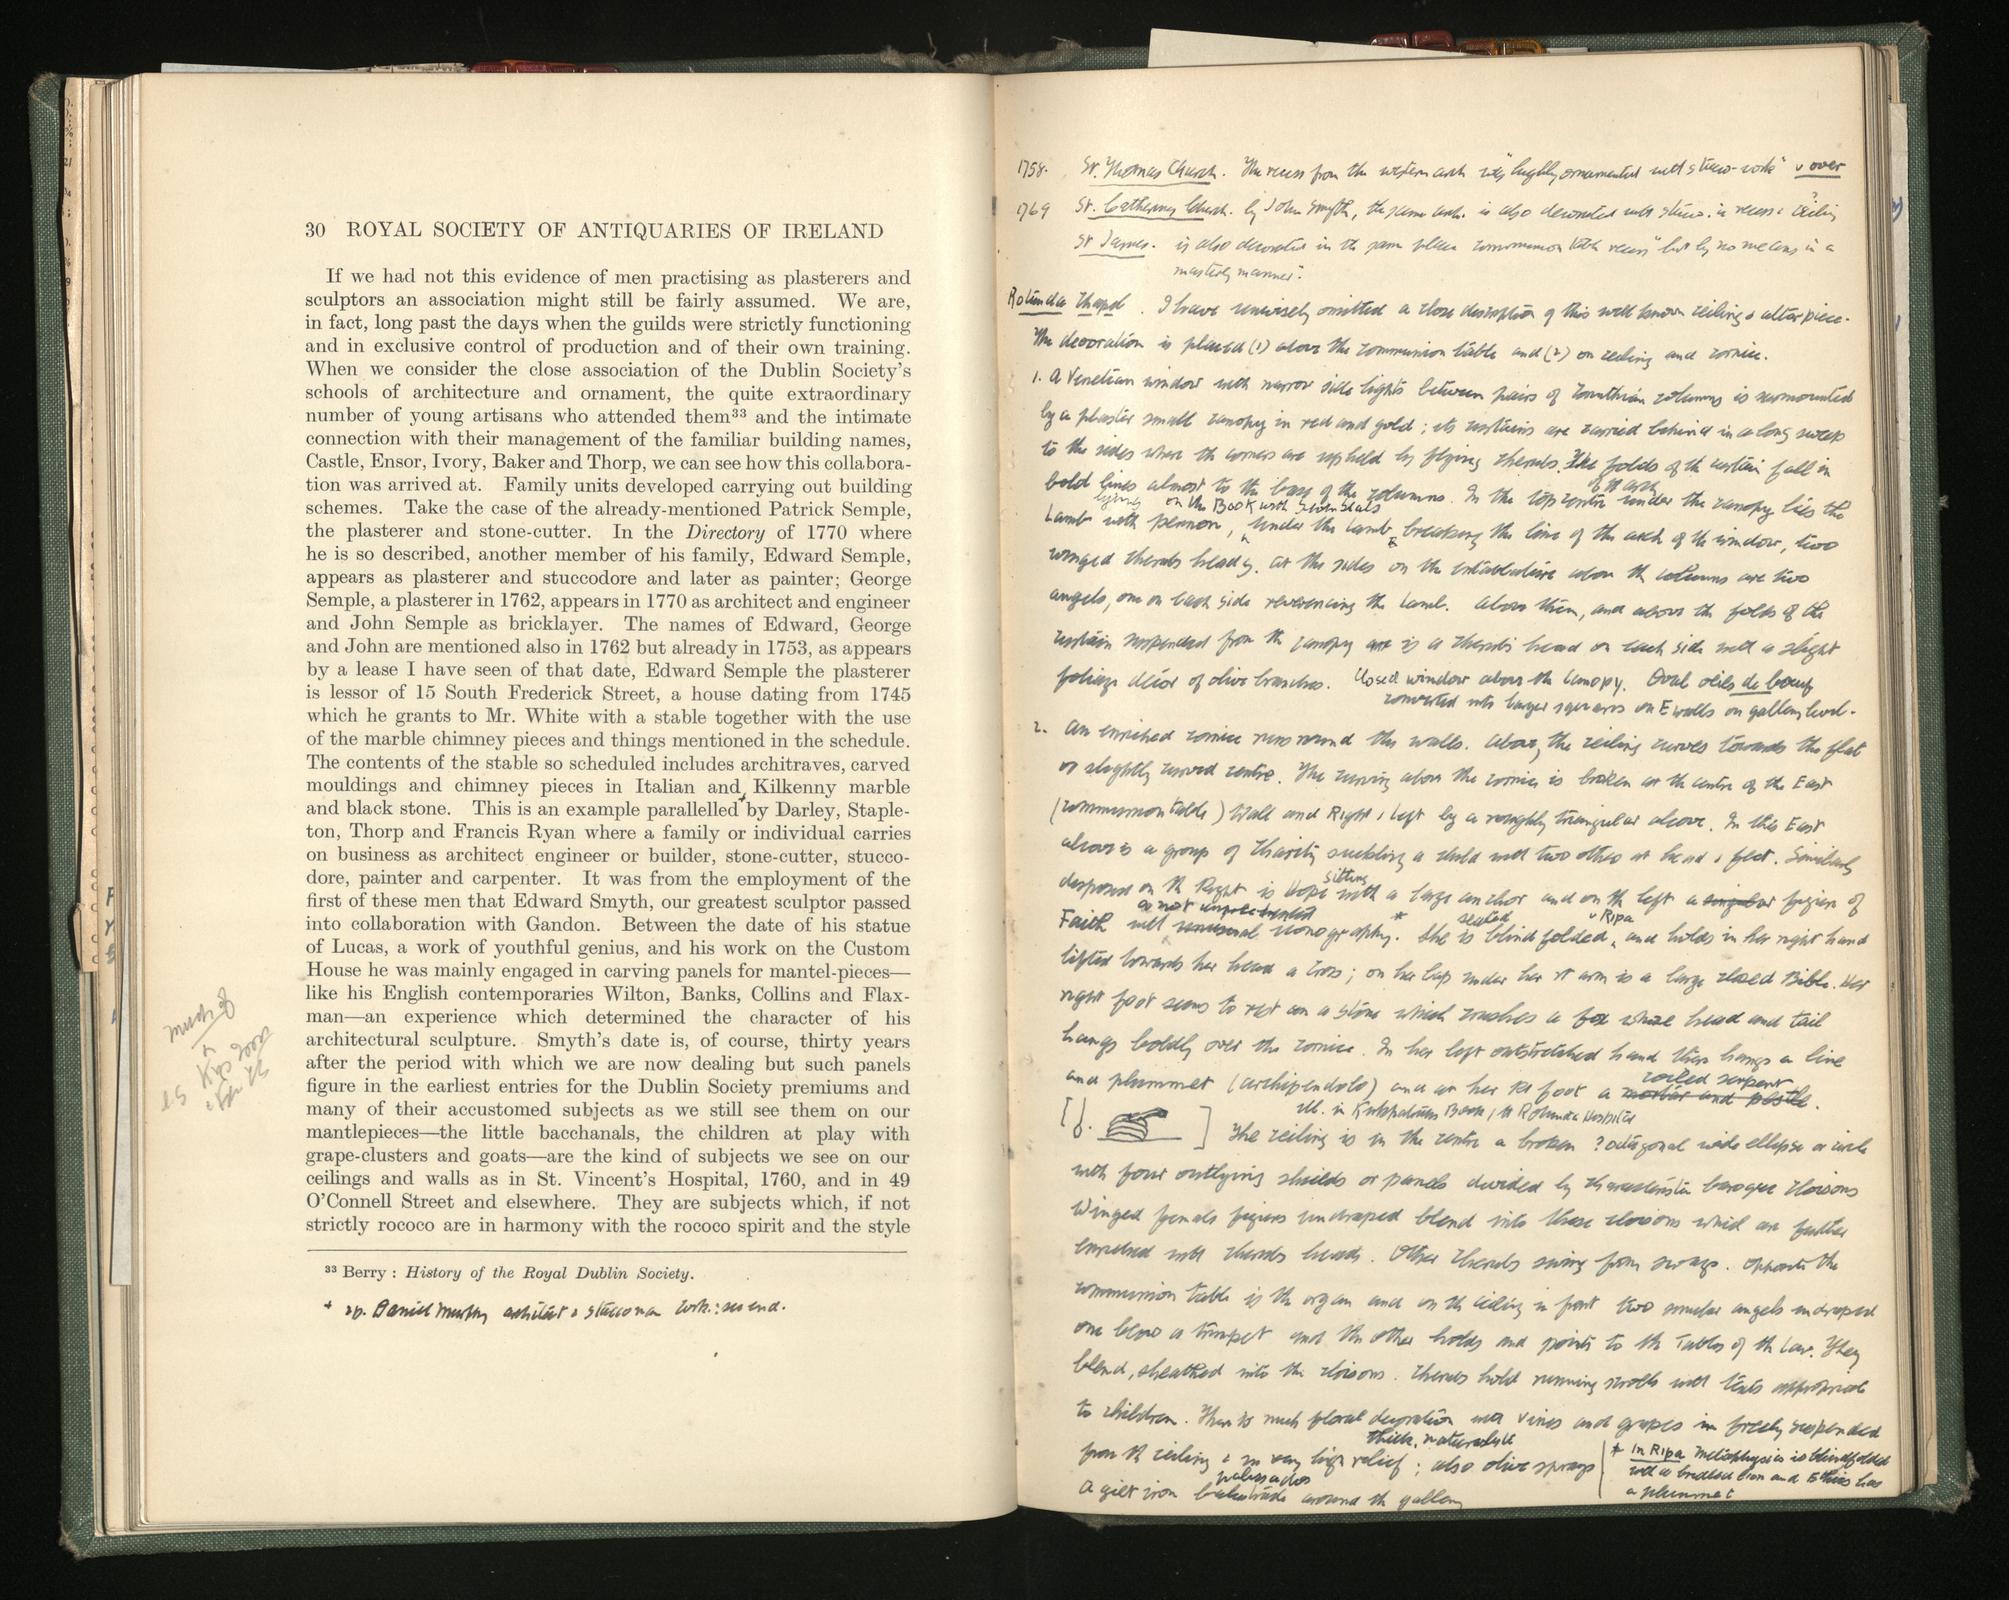 30 ROYAL SOCIETY OF ANTIQUARIES OF IRELAND
If we had not this evidence of men practising as plasterers and
sculptors an association might still be fairly assumed. We are,
in fact, long past the days when the guilds were strictly functioning
and in exclusive control of production and of their own training.
When we consider the close association of the Dublin Society's
schools of architecture and ornament, the quite extraordinary
number of young artisans who attended them³³ and the intimate
connection with their management of the familiar building names,
Castle, Ensor, Ivory, Baker and Thorp, we can see how this collabora-
tion was arrived at. Family units developed carrying out building
schemes. Take the case of the already-mentioned Patrick Semple,
the plasterer and stone-cutter. In the Directory of 1770 where
he is so described, another member of his family, Edward Semple,
appears as plasterer and stuccodore and later as painter; George
Semple, a plasterer in 1762, appears in 1770 as architect and engineer
and John Semple as bricklayer. The names of Edward, George
and John are mentioned also in 1762 but already in 1753, as appears
by a lease I have seen of that date, Edward Semple the plasterer
is lessor of 15 South Frederick Street, a house dating from 1745
which he grants to Mr. White with a stable together with the use
of the marble chimney pieces and things mentioned in the schedule.
The contents of the stable so scheduled includes architraves, carved
mouldings and chimney pieces in Italian and Kilkenny marble
and black stone. This is an example parallelled + by Darley, Staple-
ton, Thorp and Francis Ryan where a family or individual carries
on business as architect engineer or builder, stone-cutter, stucco-
dore, painter and carpenter. It was from the employment of the
first of these men that Edward Smyth, our greatest sculptor passed
into collaboration with Gandon. Between the date of his statue
of Lucas, a work of youthful genius, and his work on the Custom
House he was mainly engaged in carving panels for mantel-pieces—
like his English contemporaries Wilton, Banks, Collins and Flax-
man—an experience which determined the character of his
architectural sculpture. Smyth's date is, of course, thirty years
after the period with which we are now dealing but such panels
figure in the earliest entries for the Dublin Society premiums and
many of their accustomed subjects as we still see them on our
mantlepieces—the little bacchanals, the children at play with
grape-clusters and goats—are the kind of subjects we see on our
ceilings and walls as in St. Vincent's Hospital, 1760, and in 49
O'Connell Street and elsewhere. They are subjects which, if not
strictly rococo are in harmony with the rococo spirit and the style
³³ Berry : History of the Royal Dublin Society.
+ cp. Daniel Murphy architect & stuccoman Cork : see end.
much of
1758. St. Thomas Church. The recess from the western arch is "highly ornamented with stucco-work" v over
1769 St. Catherines Church. by John Smyth, the same arch. is also decorated with stucco. in recess & ceiling
St James. is also decorated in the same place communion table recess "but by no means in a
masterly manner".
Rotunda Chapel. I have unwisely omitted a close description of this well known ceiling & alter piece.
The decoration is placed (1) above the communion table and (2) on ceiling and cornice.
1. A Venetian window with narrow side lights between pairs of Corinthian columns is surmounted
by a plaster small canopy in red and gold ; its curtains are carried behind in a long sweep
to the sides where the corners are upheld by flying cherubs. The folds of the curtain fall in
bold lines almost to the base of the columns. In the top centre of the arch under the canopy lies the
Lamb with pennon, lying on the Book with Seven Seals under the Lamb & breaking the line of the arch of the window, two
winged cherubs heads. At the sides on the entablature above the columns are two
angels, one on each side reverencing the Lamb. Above them, and above the folds of the
curtain suspended from the canopy are is a cherubs head on each side with a slight
foliage décor of olive branches. Closed window above the Canopy. Oval oeils de boeuf
converted into larger squares on E walls on gallery level.
2. An enriched cornice runs round the walls. Above, the ceiling curves towards the flat
or slightly curved centre. The curving above the cornice is broken at the centre of the East
(communion table) Wall and Right & left by a roughly triangular alcove. In this East
alcove is a group of Charity suckling a child with two other at head & feet. Similarly
disposed on the Right is Hope sitting with a large anchor and on the left a singular figure of
Faith with unusual & not unprecedented iconography. * She is seated blindfolded, v Ripa and holds in her right hand
lifted towards her head a Cross ; on her lap under her rt arm is a large closed Bible. Her
right foot seems to rest on a stone which crushes a fox whose head and tail
hangs boldly over the cornice. In her left outstretched hand there hangs a line
and plummet (archipendolo) and on her rt foot a mortar and pestle. coiled serpent
ill. in Kirkpatricks Book, the Rotunda Hospital
[ ] The ceiling is in the centre a broken ? octagonal wide ellipse or circle
with four outlying shields or panels divided by characteristic baroque cloisons
Winged female figures undraped blend into these cloisons which are further
enriched with cherubs heads. Other cherubs swing from swags. Opposite the
communion table is the organ and on the ceiling in front two similar angels undraped
one blows a trumpet and the other holds and points to the Tables of the Law. They
blend, sheathed into the cloisons. Cherubs hold running scrolls with texts appropriate
to children. There is much floral decoration with vines and grapes in freely suspended
from the ceiling & in very high relief ; thick, naturalistic also olive sprays
A gilt iron balustrade palissados around the gallery
* In Ripa Metaphysics is blindfolded
and Ethics has
a plummet